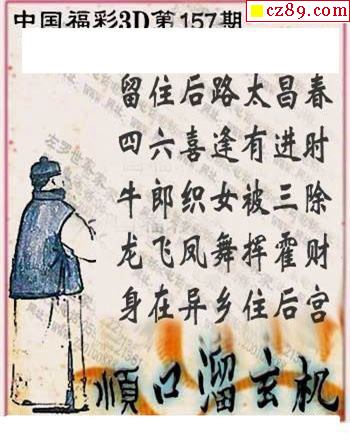 cz89.com
中国福彩3D第157期
留住后路太昌春
四六喜逢有进时
牛郎织女被三除
龙飞凤舞挥霍财
身在异乡住后宫
顺口溜玄机